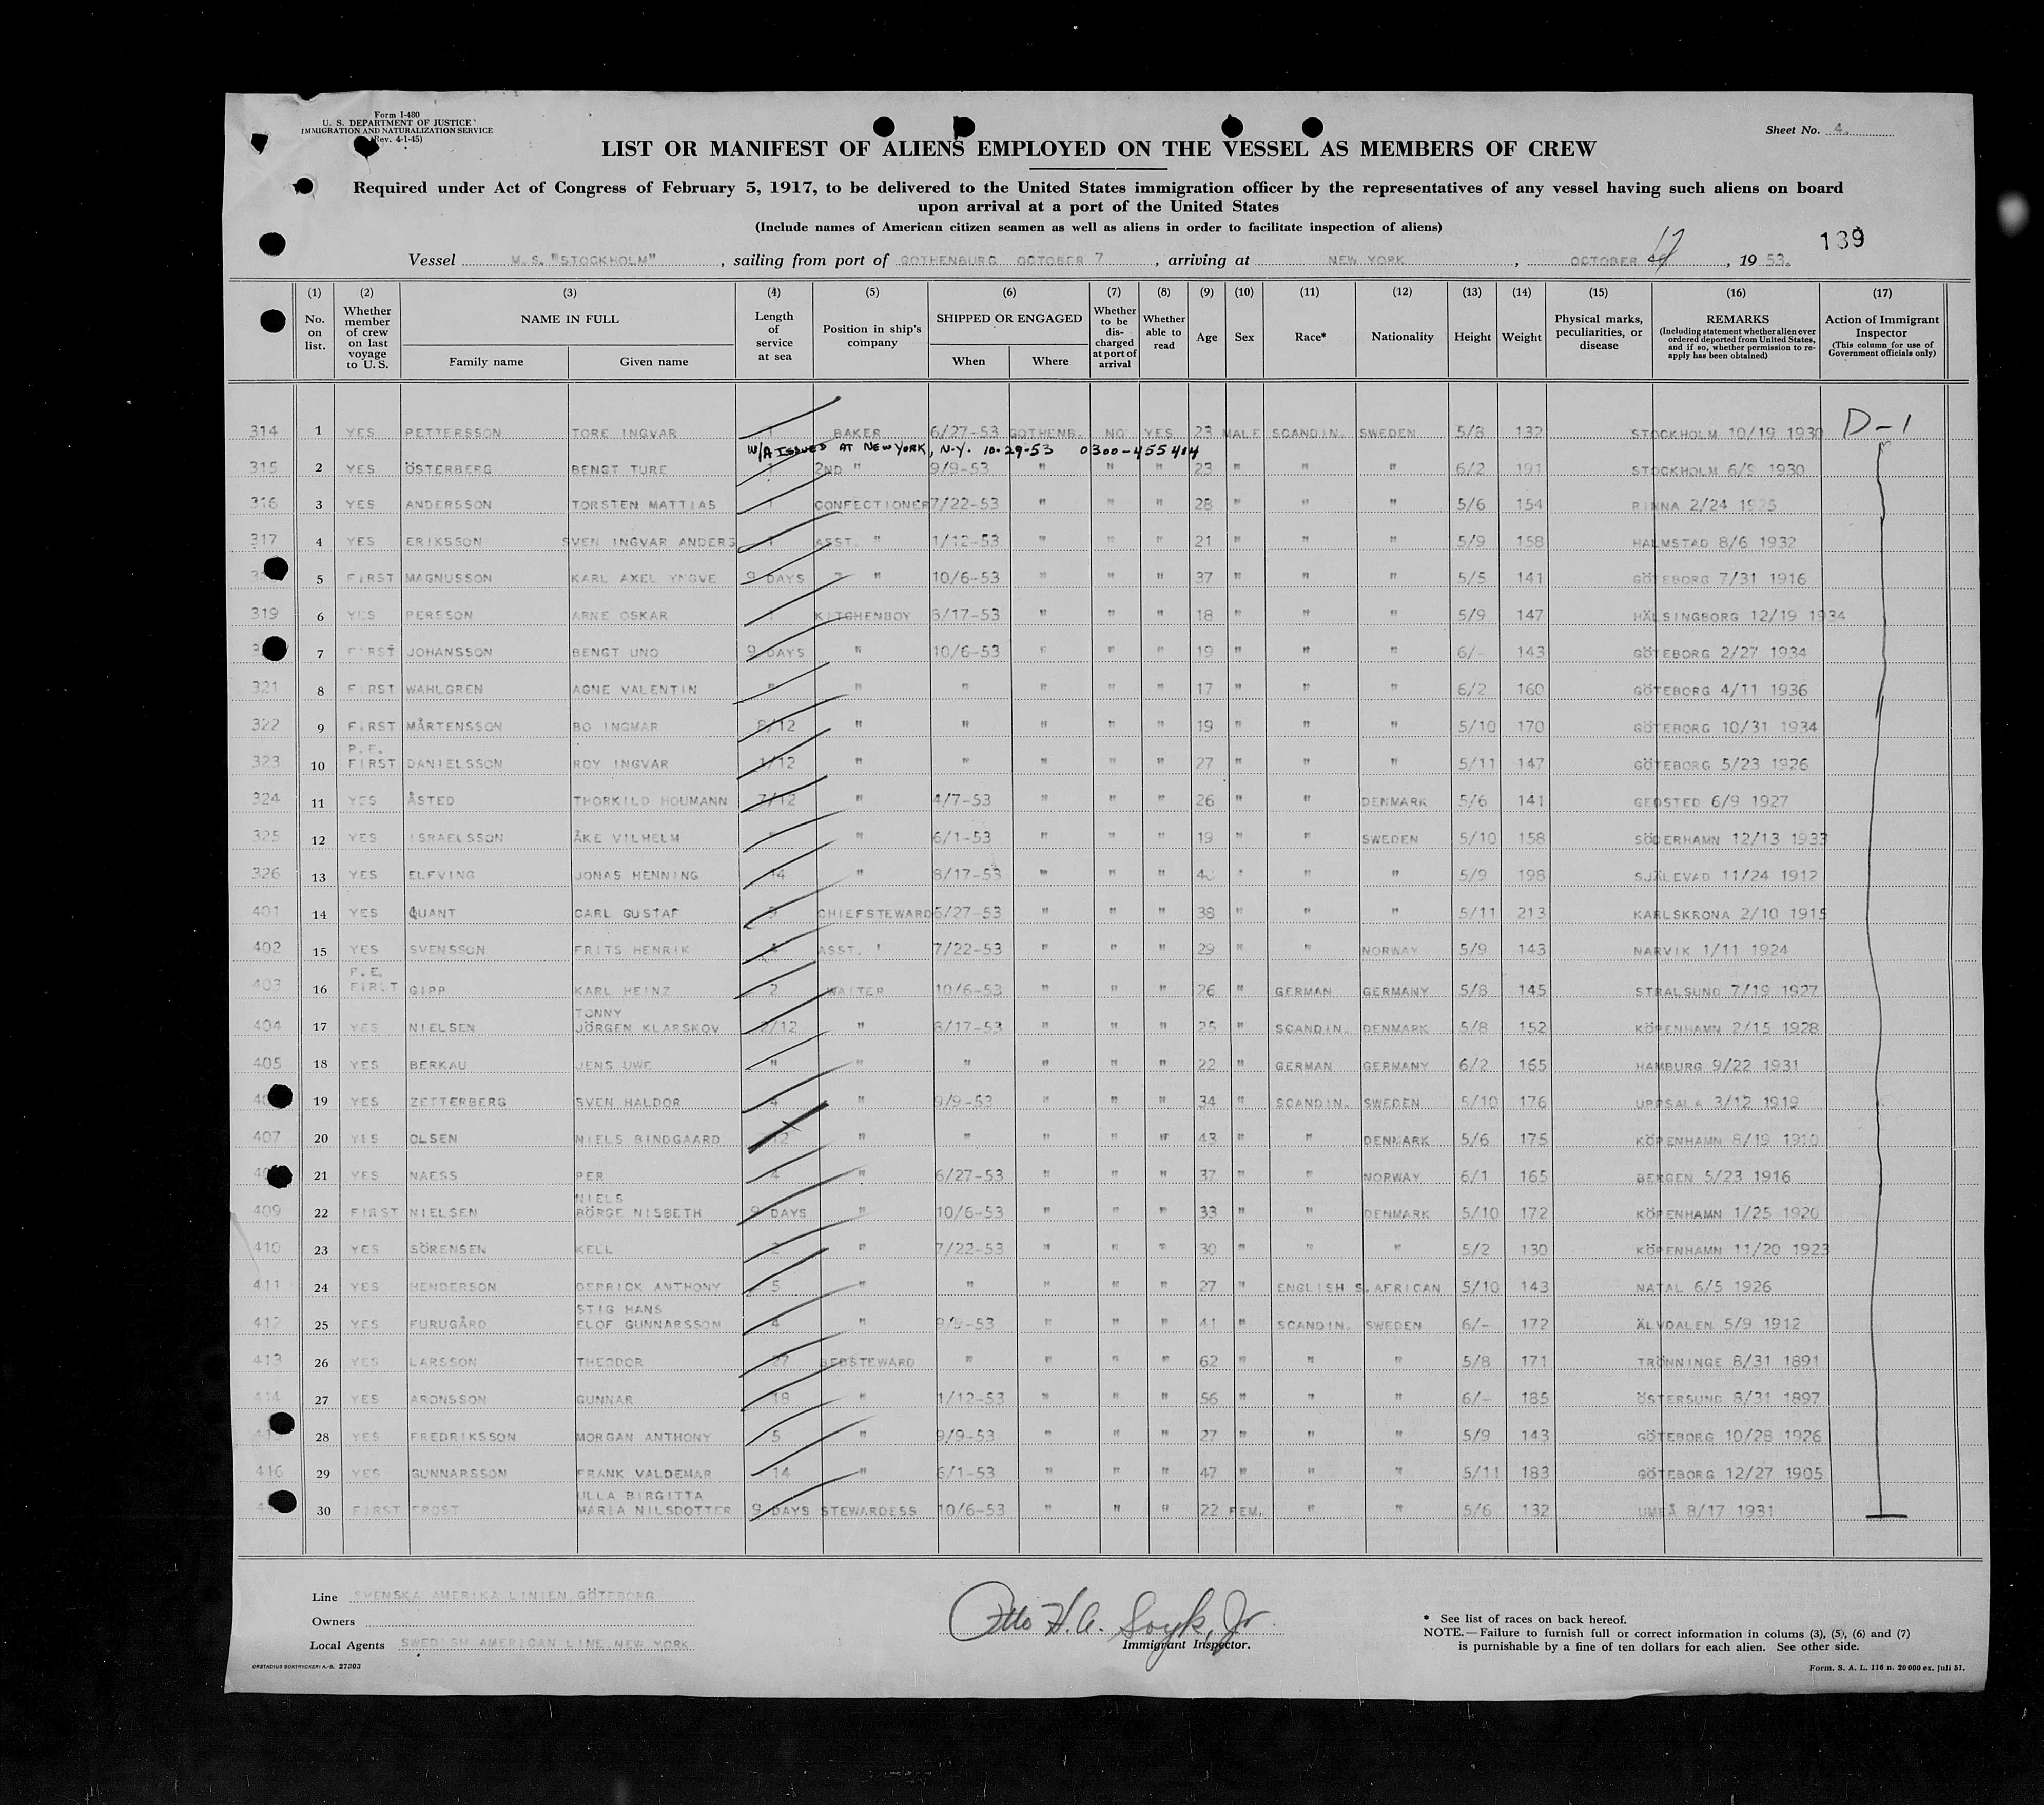 Form I-480
U. S. DEPARTMENT OF JUSTICE
IMMIGRATION AND NATURALIZATION SERVICE
(Rev. 4-1-45)
Sheet No. 4.
LIST OR MANIFEST OF ALIENS EMPLOYED ON THE VESSEL AS MEMBERS OF CREW
Required under Act of Congress of February 5, 1917, to be delivered to the United States immigration officer by the representatives of any vessel having such aliens on board
upon arrival at a port of the United States
(Include names of American citizen seamen as well as aliens in order to facilitate inspection of aliens)
139
Vessel M.S. "STOCKHOLM", sailing from port of GOTHENBURG OCTOBER 7, arriving at NEW YORK, OCTOBER, 1953.
(1) (2) (3) (4) (5) (6) (7) (8) (9) (10) (11) (12) (13) (14) (15) (16) (17)
No. on list. Whether member of crew on last voyage to U. S. NAME IN FULL Family name Given name Length of service at sea Position in ship's company SHIPPED OR ENGAGED When Where Whether to be discharged at port of arrival Whether able to read Age Sex Race* Nationality Height Weight Physical marks, peculiarities, or disease REMARKS (Including statement whether alien ever ordered deported from United States, and if so, whether permission to re-apply has been obtained) Action of Immigrant Inspector (This column for use of Government officials only)
314 1 YES PETTERSSON TORE INGVAR 1 BAKER 6/27-53 GOTHENB. NO YES 23 MALE SCANDIN. SWEDEN 5/8 132 STOCKHOLM 10/19 1930 D-1
W/A ISSUED AT NEW YORK, N.Y. 10-29-53 0300-455414
315 2 YES ÖSTERBERG BENGT TURE 1 2ND " 9/9-53 " " " 23 " " " 6/2 191 STOCKHOLM 6/9 1930
316 3 YES ANDERSSON TORSTEN MATTIAS 1 CONFECTIONER 7/22-53 " " " 28 " " " 5/6 154 RINNA 2/24 1925
317 4 YES ERIKSSON SVEN INGVAR ANDERS 1 ASST. " 1/12-53 " " " 21 " " " 5/9 158 HALMSTAD 8/6 1932
5 FIRST MAGNUSSON KARL AXEL YNGVE 9 DAYS " " 10/6-53 " " " 37 " " " 5/5 141 GÖTEBORG 7/31 1916
319 6 YES PERSSON ARNE OSKAR 1 KITCHENBOY 8/17-53 " " " 18 " " " 5/9 147 HÄLSINGBORG 12/19 1934
7 FIRST JOHANSSON BENGT UNO 9 DAYS " 10/6-53 " " " 19 " " " 6/- 143 GÖTEBORG 2/27 1934
321 8 FIRST WAHLGREN AGNE VALENTIN " " " " " " 17 " " " 6/2 160 GÖTEBORG 4/11 1936
322 9 FIRST MÅRTENSSON BO INGMAR 8/12 " " " " " 19 " " " 5/10 170 GÖTEBORG 10/31 1934
P.E.
323 10 FIRST DANIELSSON ROY INGVAR 1/12 " " " " " 27 " " " 5/11 147 GÖTEBORG 5/23 1926
324 11 YES ÅSTED THORKILD HOUMANN 7/12 " 4/7-53 " " " 26 " " DENMARK 5/6 141 GEDSTED 6/9 1927
325 12 YES ISRAELSSON ÅKE VILHELM " " 6/1-53 " " " 19 " " SWEDEN 5/10 158 SÖDERHAMN 12/13 1933
326 13 YES ELFVING JONAS HENNING 14 " 8/17-53 " " " " " " 5/9 198 SJÄLEVAD 11/24 1912
401 14 YES QUANT CARL GUSTAF CHIEFSTEWARD 6/27-53 " " " 38 " " " 5/11 213 KARLSKRONA 2/10 1915
402 15 YES SVENSSON FRITS HENRIK 4 ASST. " 7/22-53 " " " 29 " " NORWAY 5/9 143 NARVIK 1/11 1924
P.E.
403 16 FIRST GIPP KARL HEINZ 2 WAITER 10/6-53 " " " 26 " GERMAN GERMANY 5/8 145 STRALSUND 7/19 1927
TONNY
404 17 YES NIELSEN JÖRGEN KLARSKOV 2/12 " 8/17-53 " " " 25 " SCANDIN. DENMARK 5/8 152 KÖPENHAMN 2/15 1928
405 18 YES BERKAU JENS UWE " " " " " " 22 " GERMAN GERMANY 6/2 165 HAMBURG 9/22 1931
19 YES ZETTERBERG SVEN HALDOR 4 " 9/9-53 " " " 34 " SCANDIN. SWEDEN 5/10 176 UPPSALA 3/12 1919
407 20 YES OLSEN NIELS BINDGAARD 12 " " " " " 43 " " DENMARK 5/6 175 KÖPENHAMN 8/19 1910
21 YES NAESS PER 4 " 6/27-53 " " " 37 " " NORWAY 6/1 165 BERGEN 5/23 1916
NIELS
409 22 FIRST NIELSEN BÖRGE NISBETH 9 DAYS " 10/6-53 " " " 33 " " DENMARK 5/10 172 KÖPENHAMN 1/25 1920
410 23 YES SÖRENSEN KELL 2 " 7/22-53 " " " 30 " " " 5/2 130 KÖPENHAMN 11/20 1923
411 24 YES HENDERSON DERRICK ANTHONY 5 " " " " " 27 " ENGLISH S.AFRICAN 5/10 143 NATAL 6/5 1926
STIG HANS
412 25 YES FURUGÅRD ELOF GUNNARSSON 4 " 9/9-53 " " " 41 " SCANDIN. SWEDEN 6/- 172 ÄLVDALEN 5/9 1912
413 26 YES LARSSON THEODOR 27 BEDSTEWARD " " " " 62 " " " 5/8 171 TRÖNNINGE 8/31 1891
414 27 YES ARONSSON GUNNAR 19 " 1/12-53 " " " 56 " " " 6/- 185 ÖSTERSUND 8/31 1897
28 YES FREDRIKSSON MORGAN ANTHONY 5 " 9/9-53 " " " 27 " " " 5/9 143 GÖTEBORG 10/28 1926
416 29 YES GUNNARSSON FRANK VALDEMAR 14 " 6/1-53 " " " 47 " " " 5/11 183 GÖTEBORG 12/27 1905
ULLA BIRGITTA
30 FIRST FROST MARIA NILSDOTTER 9 DAYS STEWARDESS 10/6-53 " " " 22 FEM. " " 5/6 132 UMEÅ 8/17 1931
Line SVENSKA AMERIKA LINIEN GÖTEBORG
Owners
Local Agents SWEDISH AMERICAN LINE NEW YORK
Otto H.A. Soyk, Jr.
Immigrant Inspector.
* See list of races on back hereof.
NOTE.—Failure to furnish full or correct information in colums (3), (5), (6) and (7)
is punishable by a fine of ten dollars for each alien. See other side.
ORSTADIUS BOKTRYCKERI A.-B. 27303
Form. S. A. L. 116 n. 20 000 ex. Juli 51.